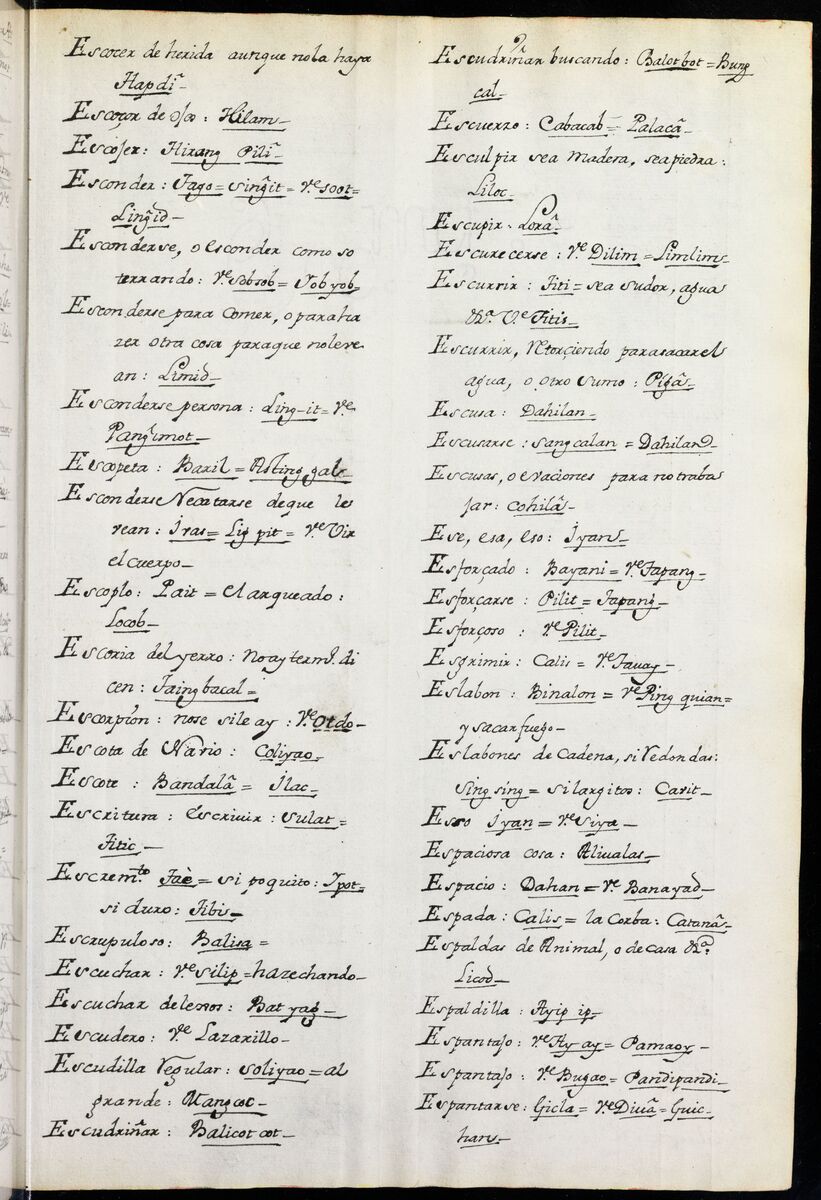 Escocer de herida aunque nola haya
Hapdi~
Escoçor de Ojo: Hilam_
Escojer: Hirang Pili~
Esconder: Tago= Singit= Ve soot=
Lingid_
Esconderse, o esconder como so
terrando: Ve Sobsob= Yobyob_
Esconderse para Comer, o para ha
zer otra cosa paraque noleve
an: Limid_
Esconderse persona: Ling-it= Ve
Pangimot_
Escopeta: Baril= Asting, gal_
Esconderse Recatarse deque le
vean: Iras= Lig pit= Ve Vir
el cuerpo_
Escoplo: Pait= el arqueado:
Locob_
Escoria del yerro: No ay termo. di
cen: Taing bacal=
Escorpion: nose sile ay: Ve Otdo_
Escota de Navio: Coliyao_
Escote: Bandalâ= Ilac_
Escritura: Escrivir: sulat=
Titic_
Escremto Taè= si poquito: Ipot=
si duro: Tibis_
Escrupuloso: Balisa=
Escuchar: Ve Silip= hazechando_
Escuchar delexos: Bat yag_
Escudero: Ve Lazarillo_
Escudilla Regular: soliyao= al
grande: Mangcot_
Escudriñar: Balicot cot_
Escudriñar buscando: Balotbot= Bung
cal_
Escuerzo: Cabacab= Palacâ_
Esculpir sea Madera, sea piedra:
Liloc_
Escupir: Lorâ_
Escurecerse: Ve Dilim= Limlim_
Escurrir: Titi= sea sudor, agua
&a. Ve Titis_
Escurrir, Retorçiendo parasacarel
agua, o otro sumo: Pigâ_
Escusa: Dahilan_
Escusarse: sangcalan= Dahilan_
Escusas, o evaciones para no traba
jar: cohilâ_
Ese, esa, eso: Iyan_
Esforçado: Bayani= Ve Tapang_
Esforçarse: Pilit= Tapang_
Esforçoso: Ve Pilit_
Esgrimir: Calis= Ve Tavay_
Eslabon: Binalon= Ve Ping quian=
y sacar fuego_
Eslabones de Cadena, si Redondas:
Sing sing= si largitos: Cavit_
Esso Iyan= Ve Siya_
Espaciosa cosa: Alivalas_
Espacio: Dahan= Ve Banayad_
Espada: Calis= la Corba: Catanâ_
Espaldas de Animal, o de casa &a:
Licod_
Espaldilla: Ayip ip_
Espantajo: Ve Ay ay= Pamaoy_
Espantajo: Ve Bugao= Pandipandi_
Espantarse: Gicla= Ve Divâ= Guic-
han_